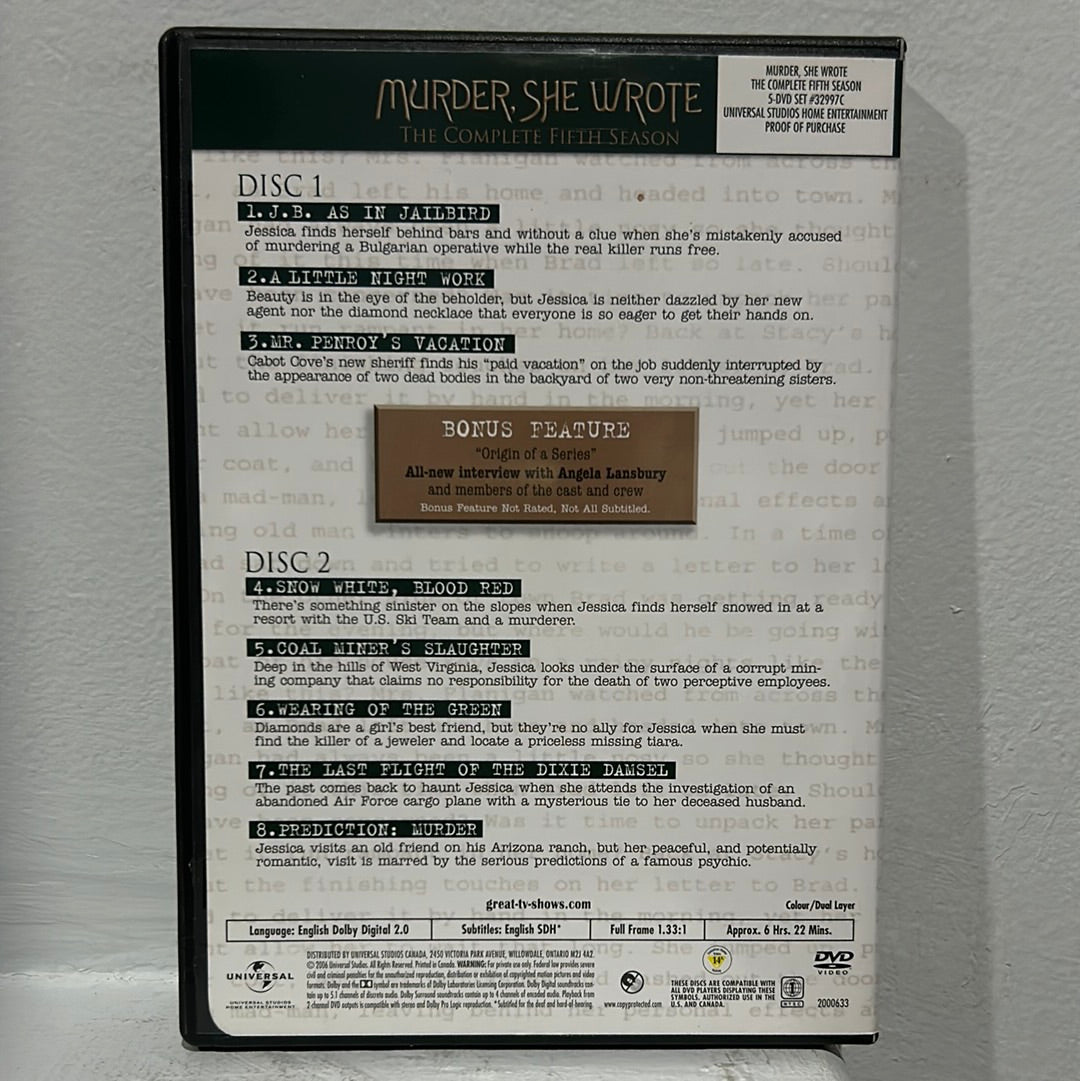 MURDER, SHE WROTE
THE COMPLETE FIFTH SEASON
MURDER, SHE WROTE
THE COMPLETE FIFTH SEASON
5-DVD SET #32997C
UNIVERSAL STUDIOS HOME ENTERTAINMENT
PROOF OF PURCHASE
DISC 1
1.J.B. AS IN JAILBIRD
Jessica finds herself behind bars and without a clue when she's mistakenly accused
of murdering a Bulgarian operative while the real killer runs free.
2.A LITTLE NIGHT WORK
Beauty is in the eye of the beholder, but Jessica is neither dazzled by her new
agent nor the diamond necklace that everyone is so eager to get their hands on.
3.MR. PENROY'S VACATION
Cabot Cove's new sheriff finds his "paid vacation" on the job suddenly interrupted by
the appearance of two dead bodies in the backyard of two very non-threatening sisters.
BONUS FEATURE
"Origin of a Series"
All-new interview with Angela Lansbury
and members of the cast and crew
Bonus Feature Not Rated, Not All Subtitled.
DISC 2
4.SNOW WHITE, BLOOD RED
There's something sinister on the slopes when Jessica finds herself snowed in at a
resort with the U.S. Ski Team and a murderer.
5.COAL MINER'S SLAUGHTER
Deep in the hills of West Virginia, Jessica looks under the surface of a corrupt min-
ing company that claims no responsibility for the death of two perceptive employees.
6.WEARING OF THE GREEN
Diamonds are a girl's best friend, but they're no ally for Jessica when she must
find the killer of a jeweler and locate a priceless missing tiara.
7.THE LAST FLIGHT OF THE DIXIE DAMSEL
The past comes back to haunt Jessica when she attends the investigation of an
abandoned Air Force cargo plane with a mysterious tie to her deceased husband.
8.PREDICTION: MURDER
Jessica visits an old friend on his Arizona ranch, but her peaceful, and potentially
romantic, visit is marred by the serious predictions of a famous psychic.
great-tv-shows.com
Colour/Dual Layer
Language: English Dolby Digital 2.0
Subtitles: English SDH*
Full Frame 1.33:1
Approx. 6 Hrs. 22 Mins.
UNIVERSAL
UNIVERSAL STUDIOS
HOME ENTERTAINMENT
DISTRIBUTED BY UNIVERSAL STUDIOS CANADA, 2450 VICTORIA PARK AVENUE, WILLOWDALE, ONTARIO M2J 4A2.
© 2006 Universal Studios. All Rights Reserved. Printed in Canada. WARNING: For private use only. Federal law provides severe
civil and criminal penalties for the unauthorized reproduction, distribution or exhibition of copyrighted motion pictures and video
formats. Dolby and the symbol are trademarks of Dolby Laboratories Licensing Corporation. Dolby Digital soundtracks con-
tain up to 5.1 channels of discrete audio. Dolby Surround soundtracks contain up to 4 channels of encoded audio. Playback from
2-channel DVD outputs is compatible with stereo and Dolby Pro Logic reproduction. *Subtitled for the deaf and hard-of-hearing.
www.copyprotected.com
14
THESE DISCS ARE COMPATIBLE WITH
ALL DVD PLAYERS DISPLAYING THESE
SYMBOLS. AUTHORIZED USE IN THE
U.S. AND CANADA.
1
DVD
VIDEO
2000633